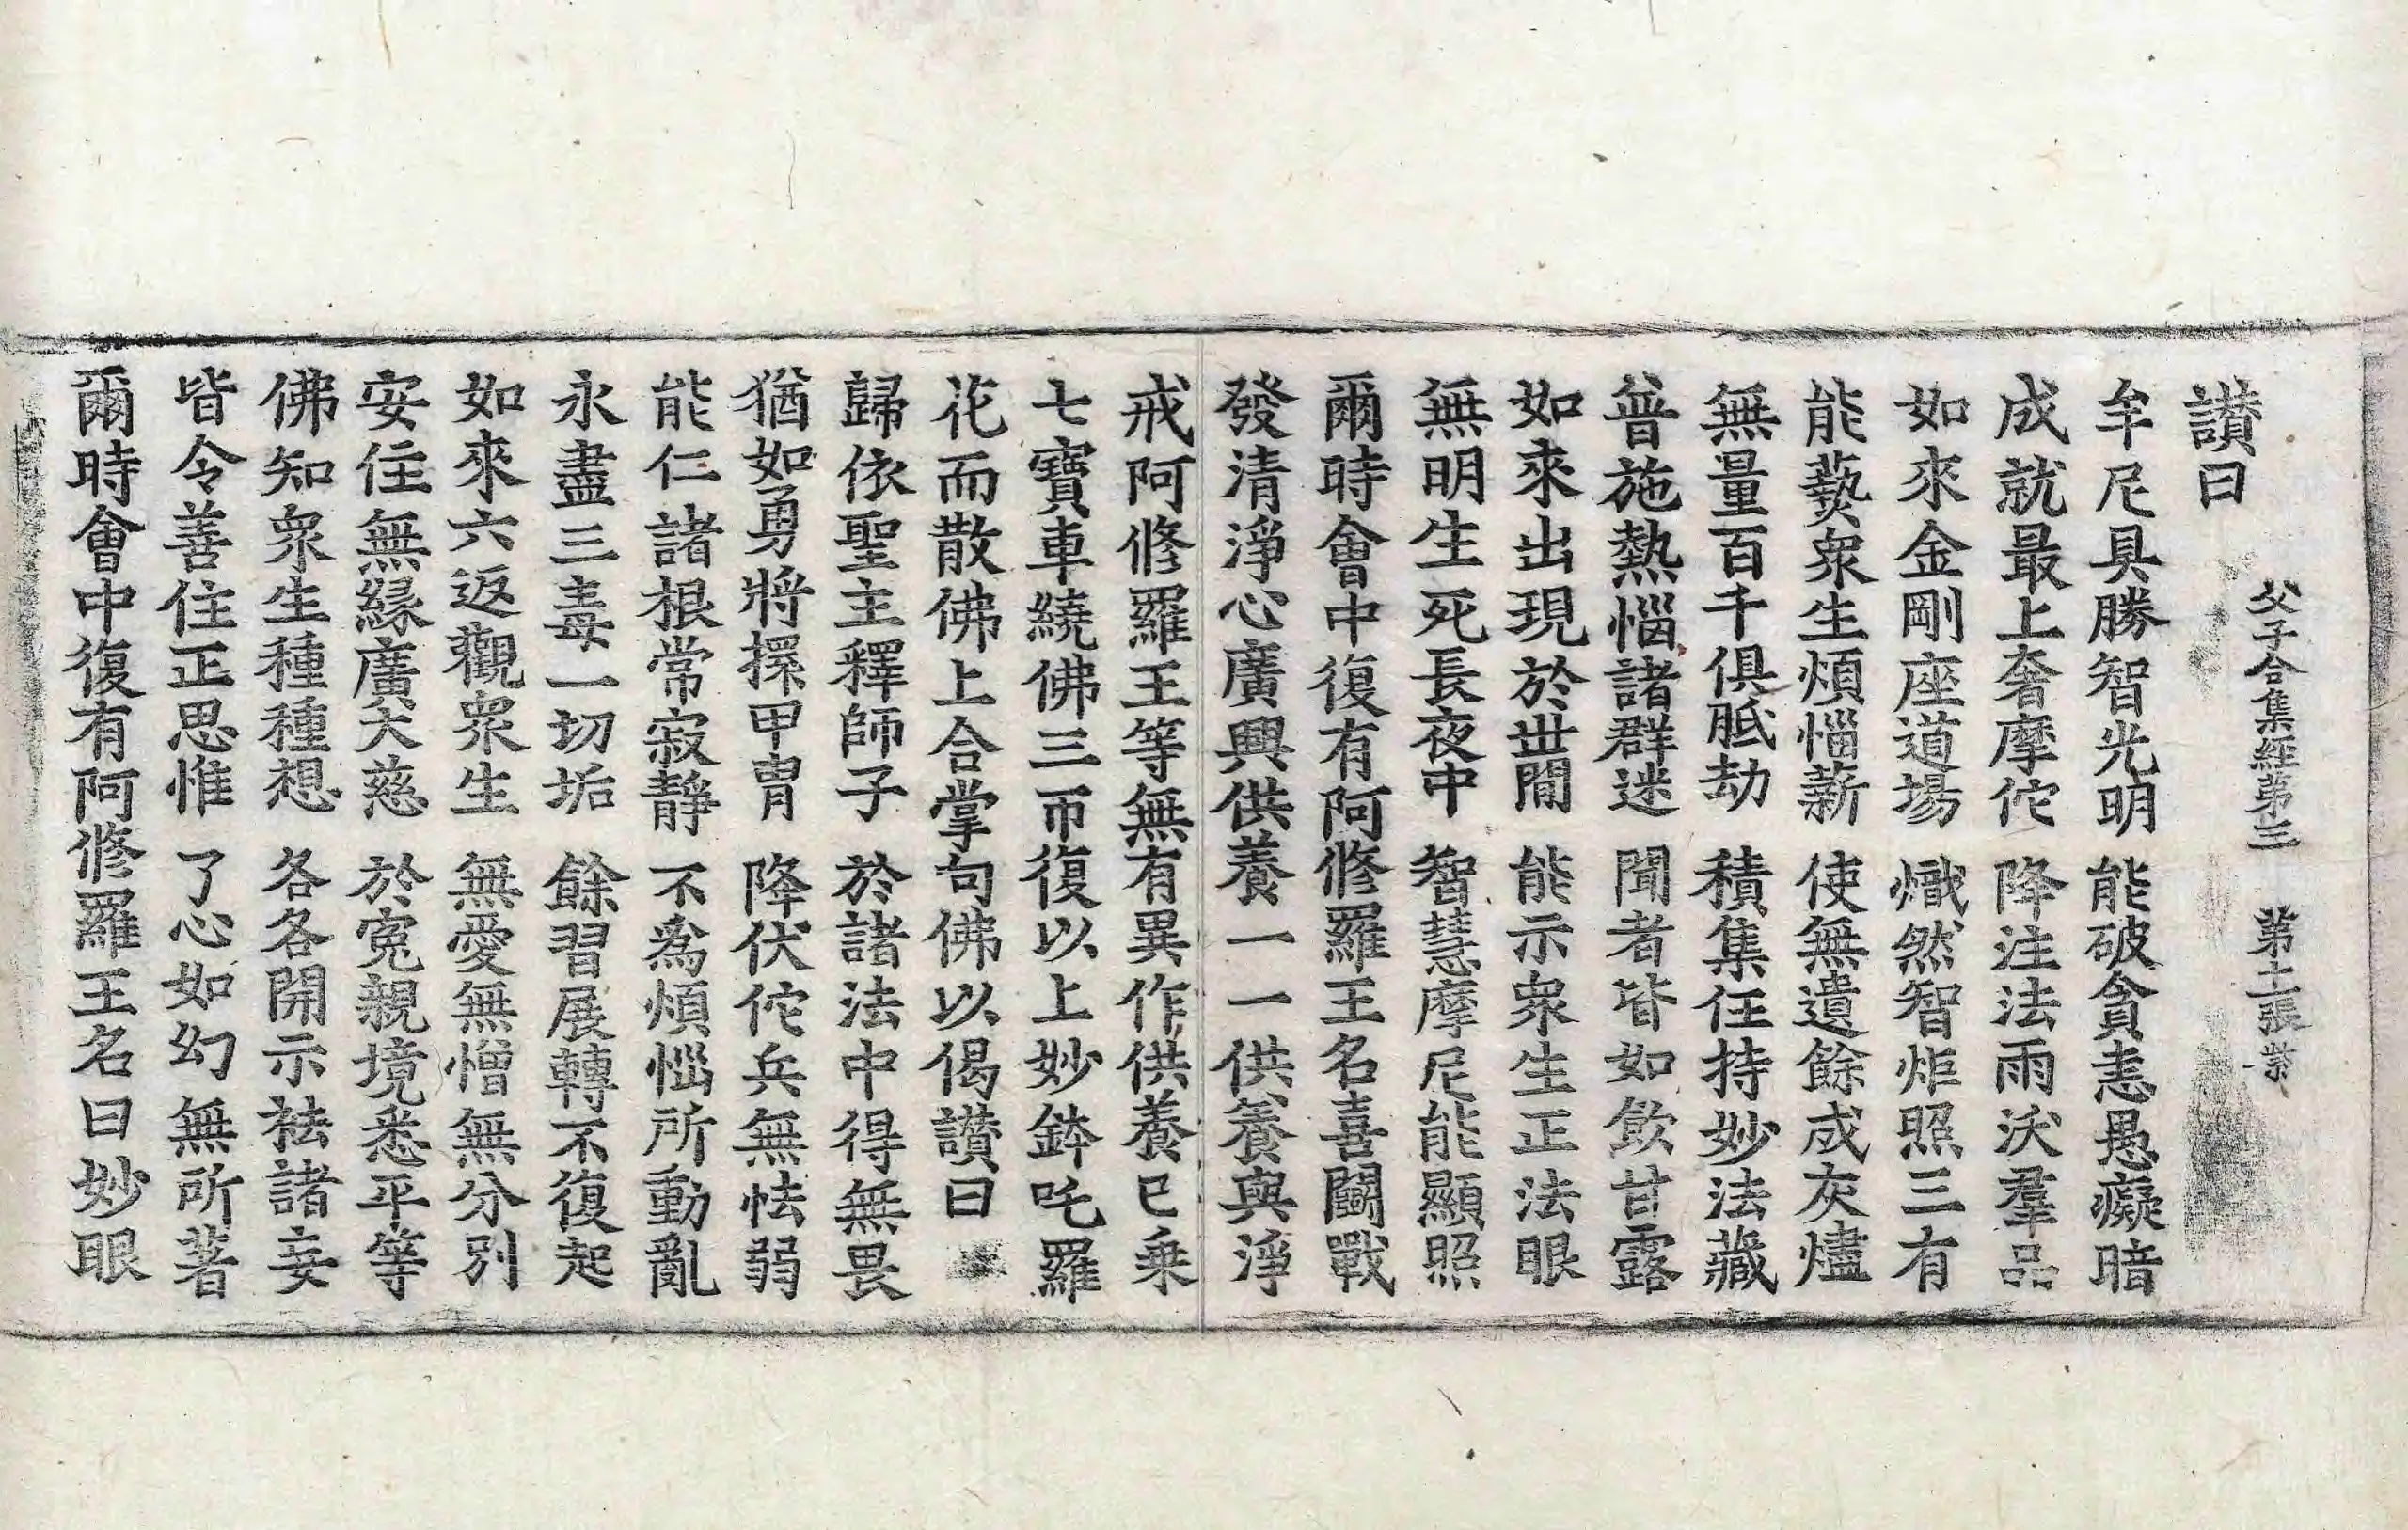 父子合集經第三　第十一張　紫
讃曰
牟尼具勝智光明　能破貪恚愚癡暗
成就最上奢摩佗　降注法雨沃羣品
如來金剛座道場　熾然智炬照三有
能爇衆生煩惱薪　使無遺餘成灰燼
無量百千俱胝劫　積集任持妙法藏
普施熱惱諸群迷　聞者皆如飲甘露
如來出現於世間　能示衆生正法眼
無明生死長夜中　智慧摩尼能顯照
爾時會中復有阿修羅王名喜鬪戰
發清淨心廣興供養一一供養與淨
戒阿修羅王等無有異作供養已乘
七寶車繞佛三帀復以上妙鉢吒羅
花而散佛上合掌向佛以偈讃曰
歸依聖主釋師子　於諸法中得無畏
猶如勇將擐甲冑　降伏佗兵無怯弱
能仁諸根常寂靜　不爲煩惱所動亂
永盡三毒一切垢　餘習展轉不復起
如來六返觀衆生　無愛無憎無分別
安住無緣廣大慈　於寃親境悉平等
佛知衆生種種想　各各開示祛諸妄
皆令善住正思惟　了心如幻無所著
爾時會中復有阿修羅王名曰妙眼